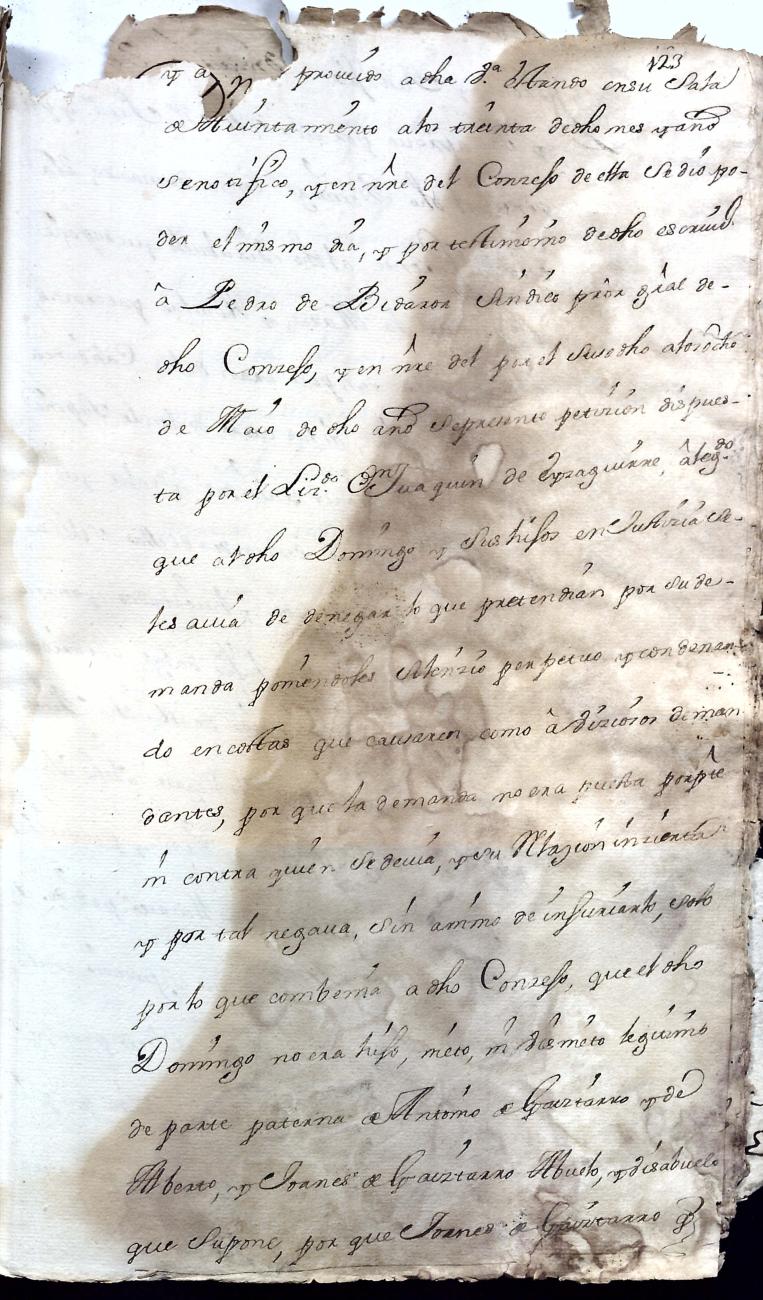 123
y a prouido a dha Va. estando en su Sala
de Aiuntamiento a los treinta de dho mes y año
se notifico, y en nre del Conzejo de ella se dio po-
der el mismo dia, y por testimonio de dho escriuo.
â Pedro de Bidaror Sindico pror gral de-
dho Conzejo, y en nre del por el susodho a los ocho
de Maio de dho año se presento petizion dispues-
ta por el Lizdo. Dn Juaquin de Eyzaguirre, âlegdo.
que a los dho Domingo y sus hijos en Justizia se-
les auia de denegar lo que pretendian por su de-
manda poniendoles silenzio perpetuo y condenan-
do en costas que causaren como â diziosos deman
dantes, por que la demanda no era puesta por pte
ni contra quien se deuia, y su Relazion inzierta
y por tal negaua, sin animo de injuriarlo, solo
por lo que combenia a dho Conzejo, que el dho
Domingo no era hijo, nieto, ni bisnieto legitimo
de parte paterna de Antonio de Gaiztarro y de
Alberto, y Joanes de Gaiztarro Abuelo, y bisabuelo
que supone, por que Joanes de Gaiztarro